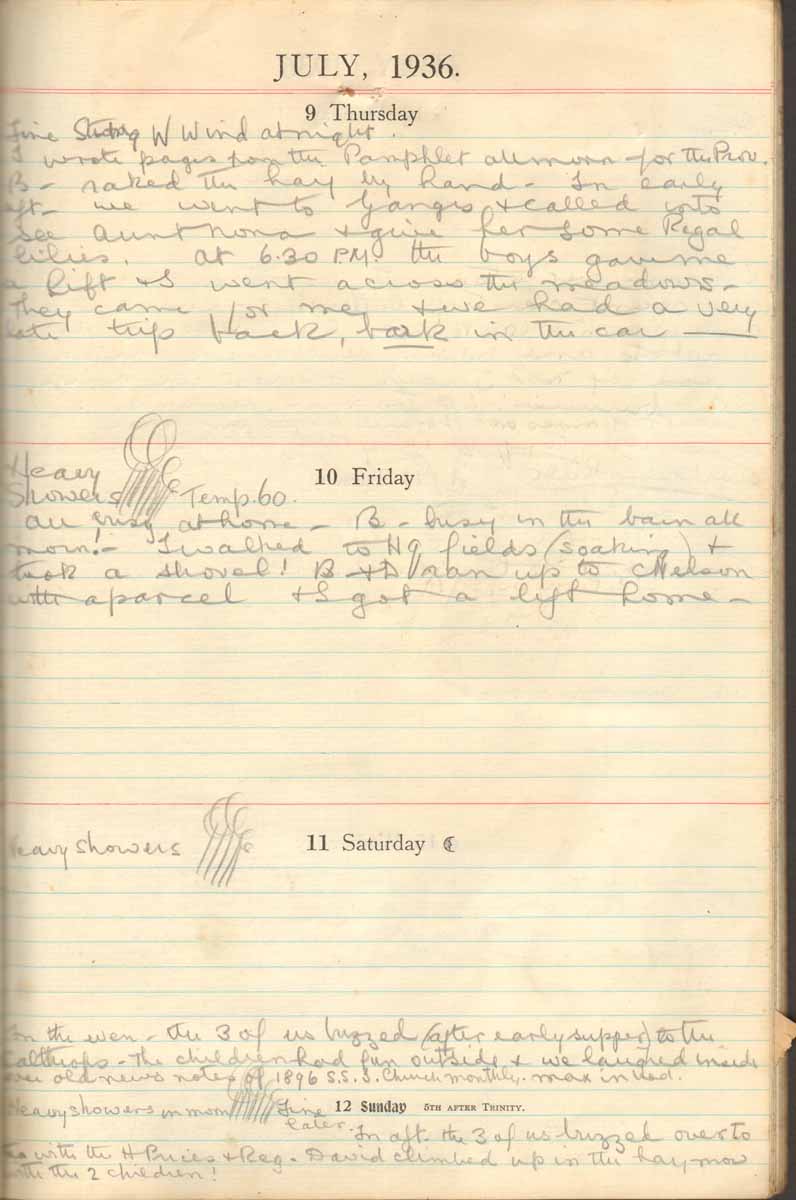 JULY, 1936.
9 Thursday
Fine Strong W Wind at night.
I wrote pages for the Pamphlet all morn for the Prov.
B - raked the hay by hand - In early
aft - we went to Ganges & called into
see Aunt Nona & give her some Regal
lilies. At 6.30 P.M. the boys gave me
a lift & I went across the meadows -
They came for me & we had a very
late trip back, bark in the car
10 Friday
Heavy
Showers Temp. 60.
All busy at home - B - busy in the barn all
morn! - I walked to Hq fields (soaking) &
took a shovel! B & D ran up to Nelson
with a parcel & I got a lift home -
11 Saturday
Heavy showers
In the even - the 3 of us buzzed (after early supper) to the
Calthrops - The children had fun outside & we laughed inside
over old news notes of 1896 S.S.I. Church monthly. Max in bed.
12 Sunday 5TH AFTER TRINITY.
Heavy showers in morn Fine
later. In aft. the 3 of us buzzed over to
tea with the H Prices & Reg. David climbed up in the hay mow
with the 2 children!